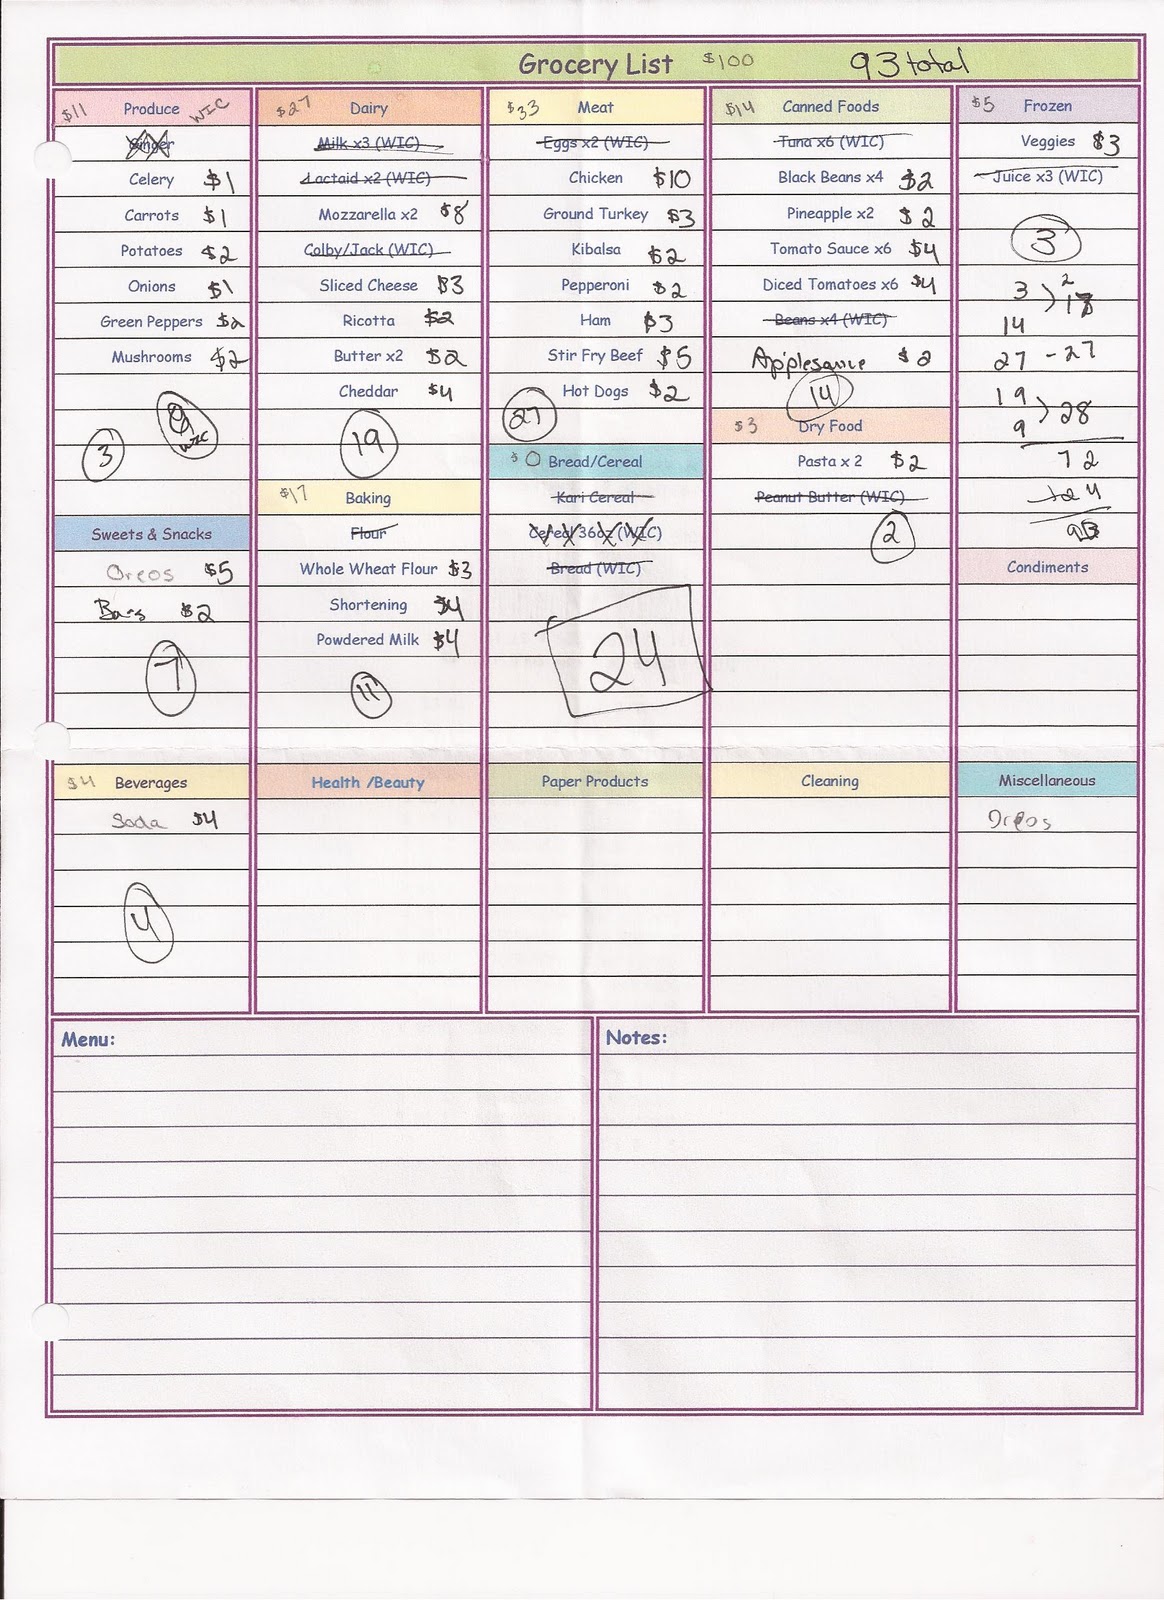 Grocery List $100 93 total
$11 Produce WIC
Ginger
Celery $1
Carrots $1
Potatoes $2
Onions $1
Green Peppers $2
Mushrooms $2
9 WIC
3
Sweets & Snacks
Oreos $5
Bars $2
7
$27 Dairy
Milk x3 (WIC)
Lactaid x2 (WIC)
Mozzarella x2 $8
Colby/Jack (WIC)
Sliced Cheese $3
Ricotta $2
Butter x2 $2
Cheddar $4
19
$17 Baking
Flour
Whole Wheat Flour $3
Shortening $4
Powdered Milk $4
11
$33 Meat
Eggs x2 (WIC)
Chicken $10
Ground Turkey $3
Kibalsa $2
Pepperoni $2
Ham $3
Stir Fry Beef $5
Hot Dogs $2
27
$0 Bread/Cereal
Kari Cereal
Cereal 36oz (WIC)
Bread (WIC)
24
$14 Canned Foods
Tuna x6 (WIC)
Black Beans x4 $2
Pineapple x2 $2
Tomato Sauce x6 $4
Diced Tomatoes x6 $4
Beans x4 (WIC)
Applesauce $2
14
$3 Dry Food
Pasta x 2 $2
Peanut Butter (WIC)
2
$5 Frozen
Veggies $3
Juice x3 (WIC)
3
3
2
14
27 - 27
19
28
9
72
93
Condiments
$4 Beverages
Soda $4
4
Health /Beauty
Paper Products
Cleaning
Miscellaneous
Oreos
Menu:
Notes: